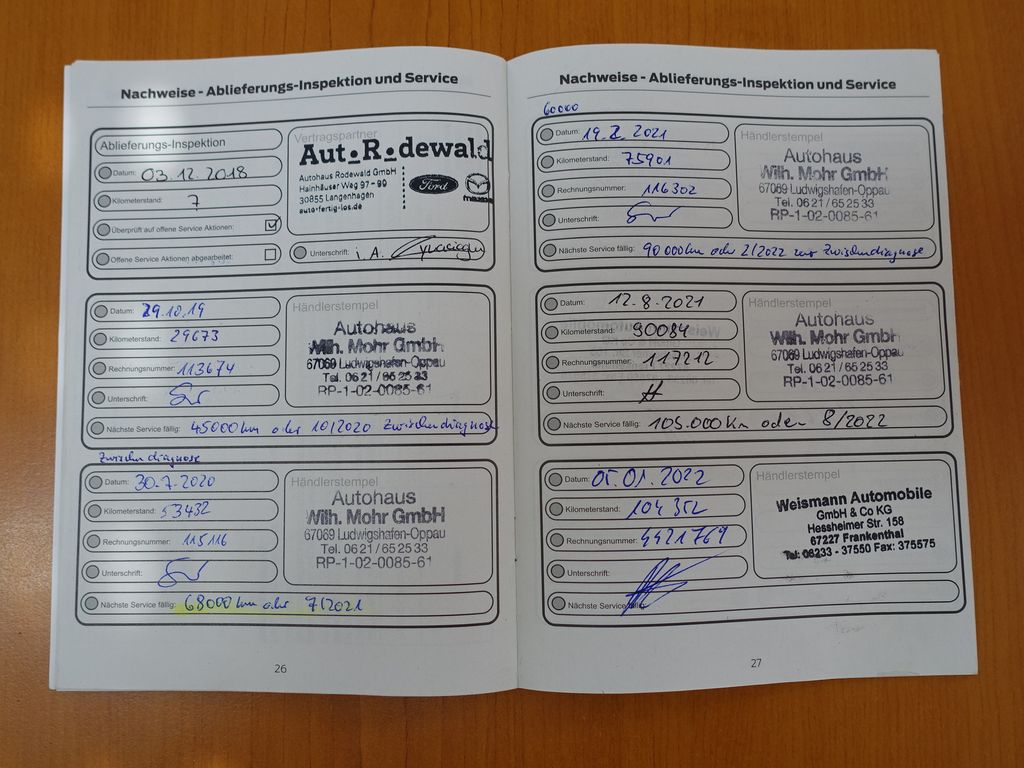 Nachweise - Ablieferungs-Inspektion und Service
Ablieferungs-Inspektion
Datum: 03.12.2018
Kilometerstand: 7
Überprüft auf offene Service Aktionen:
Offene Service Aktionen abgearbeitet:
Vertragspartner
Aut.R.dewald
Autohaus Rodewald GmbH
Hainhäuser Weg 97-99
30855 Langenhagen
auto-fertig-los.de
Ford
mazda
Unterschrift: i.A.
Datum: 29.10.19
Kilometerstand: 29673
Rechnungsnummer: 113674
Unterschrift:
Händlerstempel
Autohaus
Wilh. Mohr GmbH
67069 Ludwigshafen-Oppau
Tel. 06 21 / 65 25 33
RP-1-02-0085-61
Nächste Service fällig: 45000 km oder 10/2020 Zwischendiagnose
Zwischendiagnose
Datum: 30.7.2020
Kilometerstand: 53432
Rechnungsnummer: 115116
Unterschrift:
Händlerstempel
Autohaus
Wilh. Mohr GmbH
67069 Ludwigshafen-Oppau
Tel. 06 21 / 65 25 33
RP-1-02-0085-61
Nächste Service fällig: 68000 km oder 7/2021
26
Nachweise - Ablieferungs-Inspektion und Service
60000
Datum: 19.2.2021
Kilometerstand: 75901
Rechnungsnummer: 116302
Unterschrift:
Händlerstempel
Autohaus
Wilh. Mohr GmbH
67069 Ludwigshafen-Oppau
Tel. 06 21 / 65 25 33
RP-1-02-0085-61
Nächste Service fällig: 90000 km oder 2/2022 zur Zwischendiagnose
Datum: 12.8.2021
Kilometerstand: 90084
Rechnungsnummer: 117212
Unterschrift:
Händlerstempel
Autohaus
Wilh. Mohr GmbH
67069 Ludwigshafen-Oppau
Tel. 06 21 / 65 25 33
RP-1-02-0085-61
Nächste Service fällig: 105.000 Km oder 8/2022
Datum: 05.01.2022
Kilometerstand: 104352
Rechnungsnummer: 4421769
Unterschrift:
Händlerstempel
Weismann Automobile
GmbH & Co KG
Hessheimer Str. 158
67227 Frankenthal
Tel: 06233 - 37550 Fax: 375575
Nächste Service fällig:
27